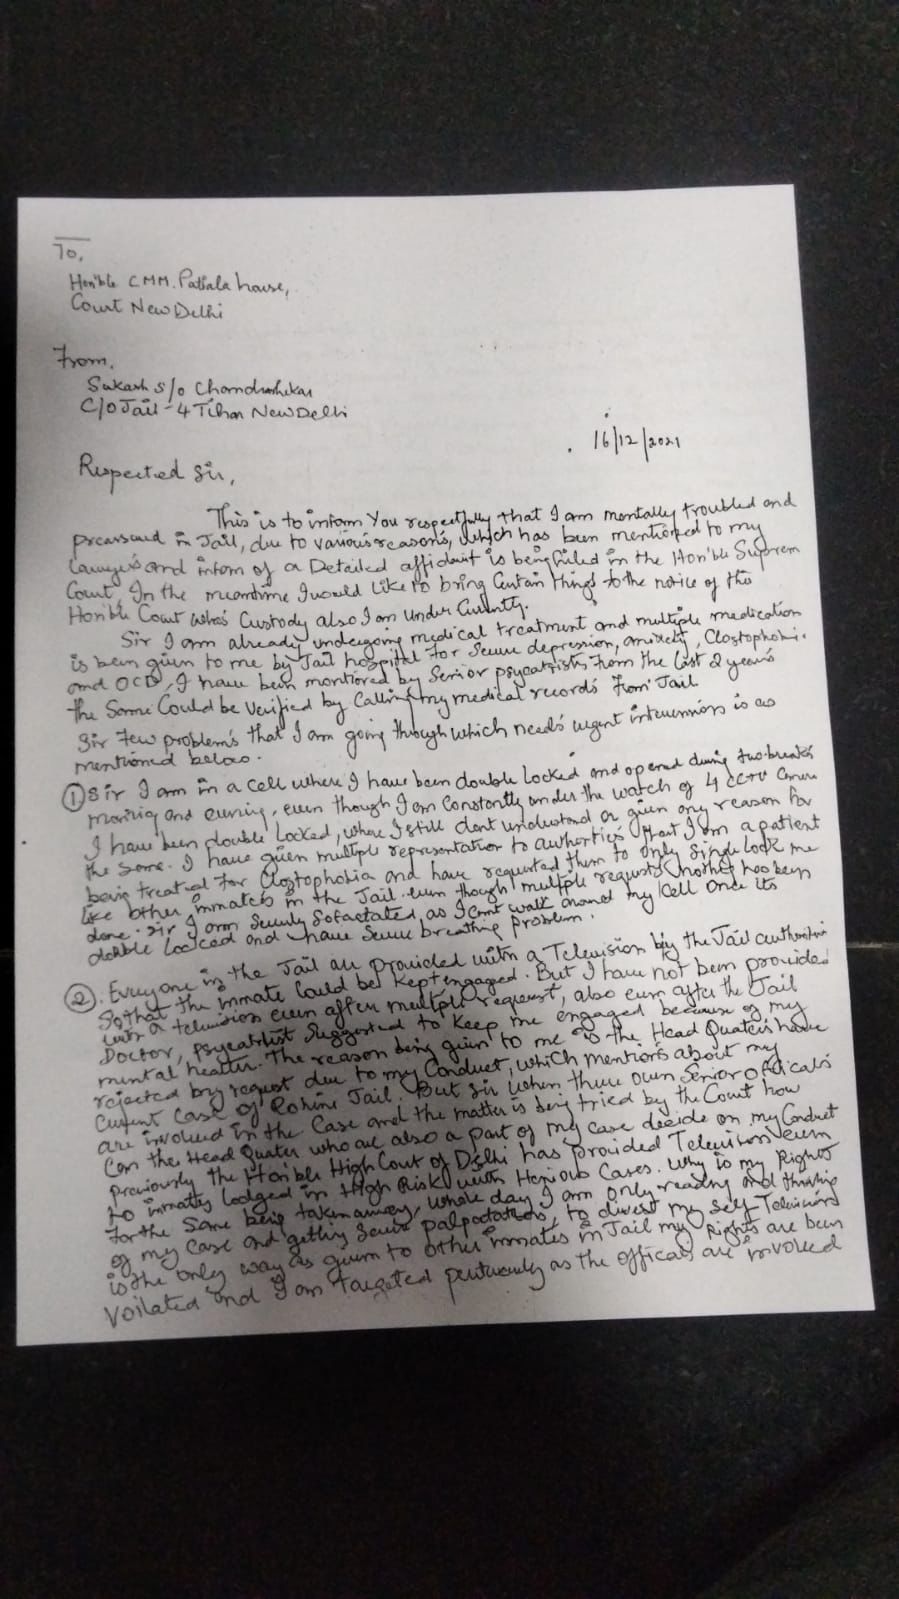 To,
Hon'ble CMM. Patiala house,
Court New Delhi
From,
Sukash s/o Chandrashekar
C/o Jail-4 Tihar New Delhi
16/12/2021
Respected Sir,
This is to inform You respectfully that I am mentally troubled and
in Jail, due to various reasons, which has been mentioned to my
Lawyers and inform of a Detailed affidavit is being filed in the Hon'ble Suprem
Court, In the meantime I would like to bring Certain things to the notice of this
Hon'ble Court who's Custody also I am under Currently.
Sir I am already undergoing medical treatment and multiple medication
is been given to me by Jail hospital for Severe depression, anixety, Clostophobi.
and OCD, I have been montiored by Senior psycatrists from the last 2 years
the Same Could be Verified by Calling my medical records from Jail.
Sir Few problem's that I am going through which needs urgent intervension is as
mentioned below.
① Sir I am in a cell where I have been double Locked and opened during two breaks
morinig and evening, even though I am Constantly under the watch of 4 CCTV Camera
I have been double Locked, where I still dont understand or given any reason for
the Same. I have given multiple representation to authorties that I am a patient
being treated for Clostophobia and have requested them to only Single Lock me
like other immates in the Jail even though multiple requests nothing has been
done. Sir I am Severly Sofactated, as I cant walk around my Cell once its
double Locked and have Severe breathing problem.
②. Everyone in the Jail are provided with a Television by the Jail authorities
So that the inmate Could be kept engaged. But I have not been provided
with a television even after multiple request, also even after the Jail
Doctor, psycatrist Suggested to Keep me engaged because of my
mental health. The reason being given to me is the Head Quaters have
rejected my request due to my Conduct, which mentions about my
current Case of Rohini Jail. But Sir when there own Senior Officals
are involved in the Case and the matter is being tried by the Court how
Can the Head Quater who are also a part of my case decide on my Conduct
previously the Hon'ble High Court of Delhi has provided Television even
to inmates lodged in High Risk with Henious Cases. Why is my Rights
For the Same being taken away, whole day I am only reading and thinking
of my Case and getting Severe palpatations, to divert my self Television
is the only way as given to other inmates in Jail my Rights are been
Voilated and I am Targeted as the officals are involved